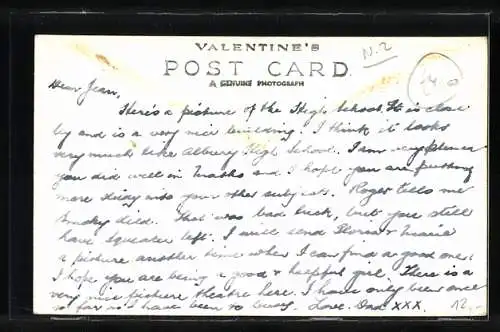 VALENTINE'S
POST CARD
A GENUINE PHOTOGRAPH
N.Z
Dear Jean,
Here's a picture of the High School. It is close
by and is a very nice building. I think it looks
very much like Albury High School. I am very pleased
you did well in Maths and I hope you are putting
more study into your other subjects. Roger tells me
Smoky died. That was bad luck, but you still
have Squeaker left. I will send Gloria & Marie
a picture another time when I can find a good one.
I hope you are being a good & helpful girl. There is a
very nice picture theatre here. I have only been once
so far as I have been so busy. Love. Dad XXX.
12